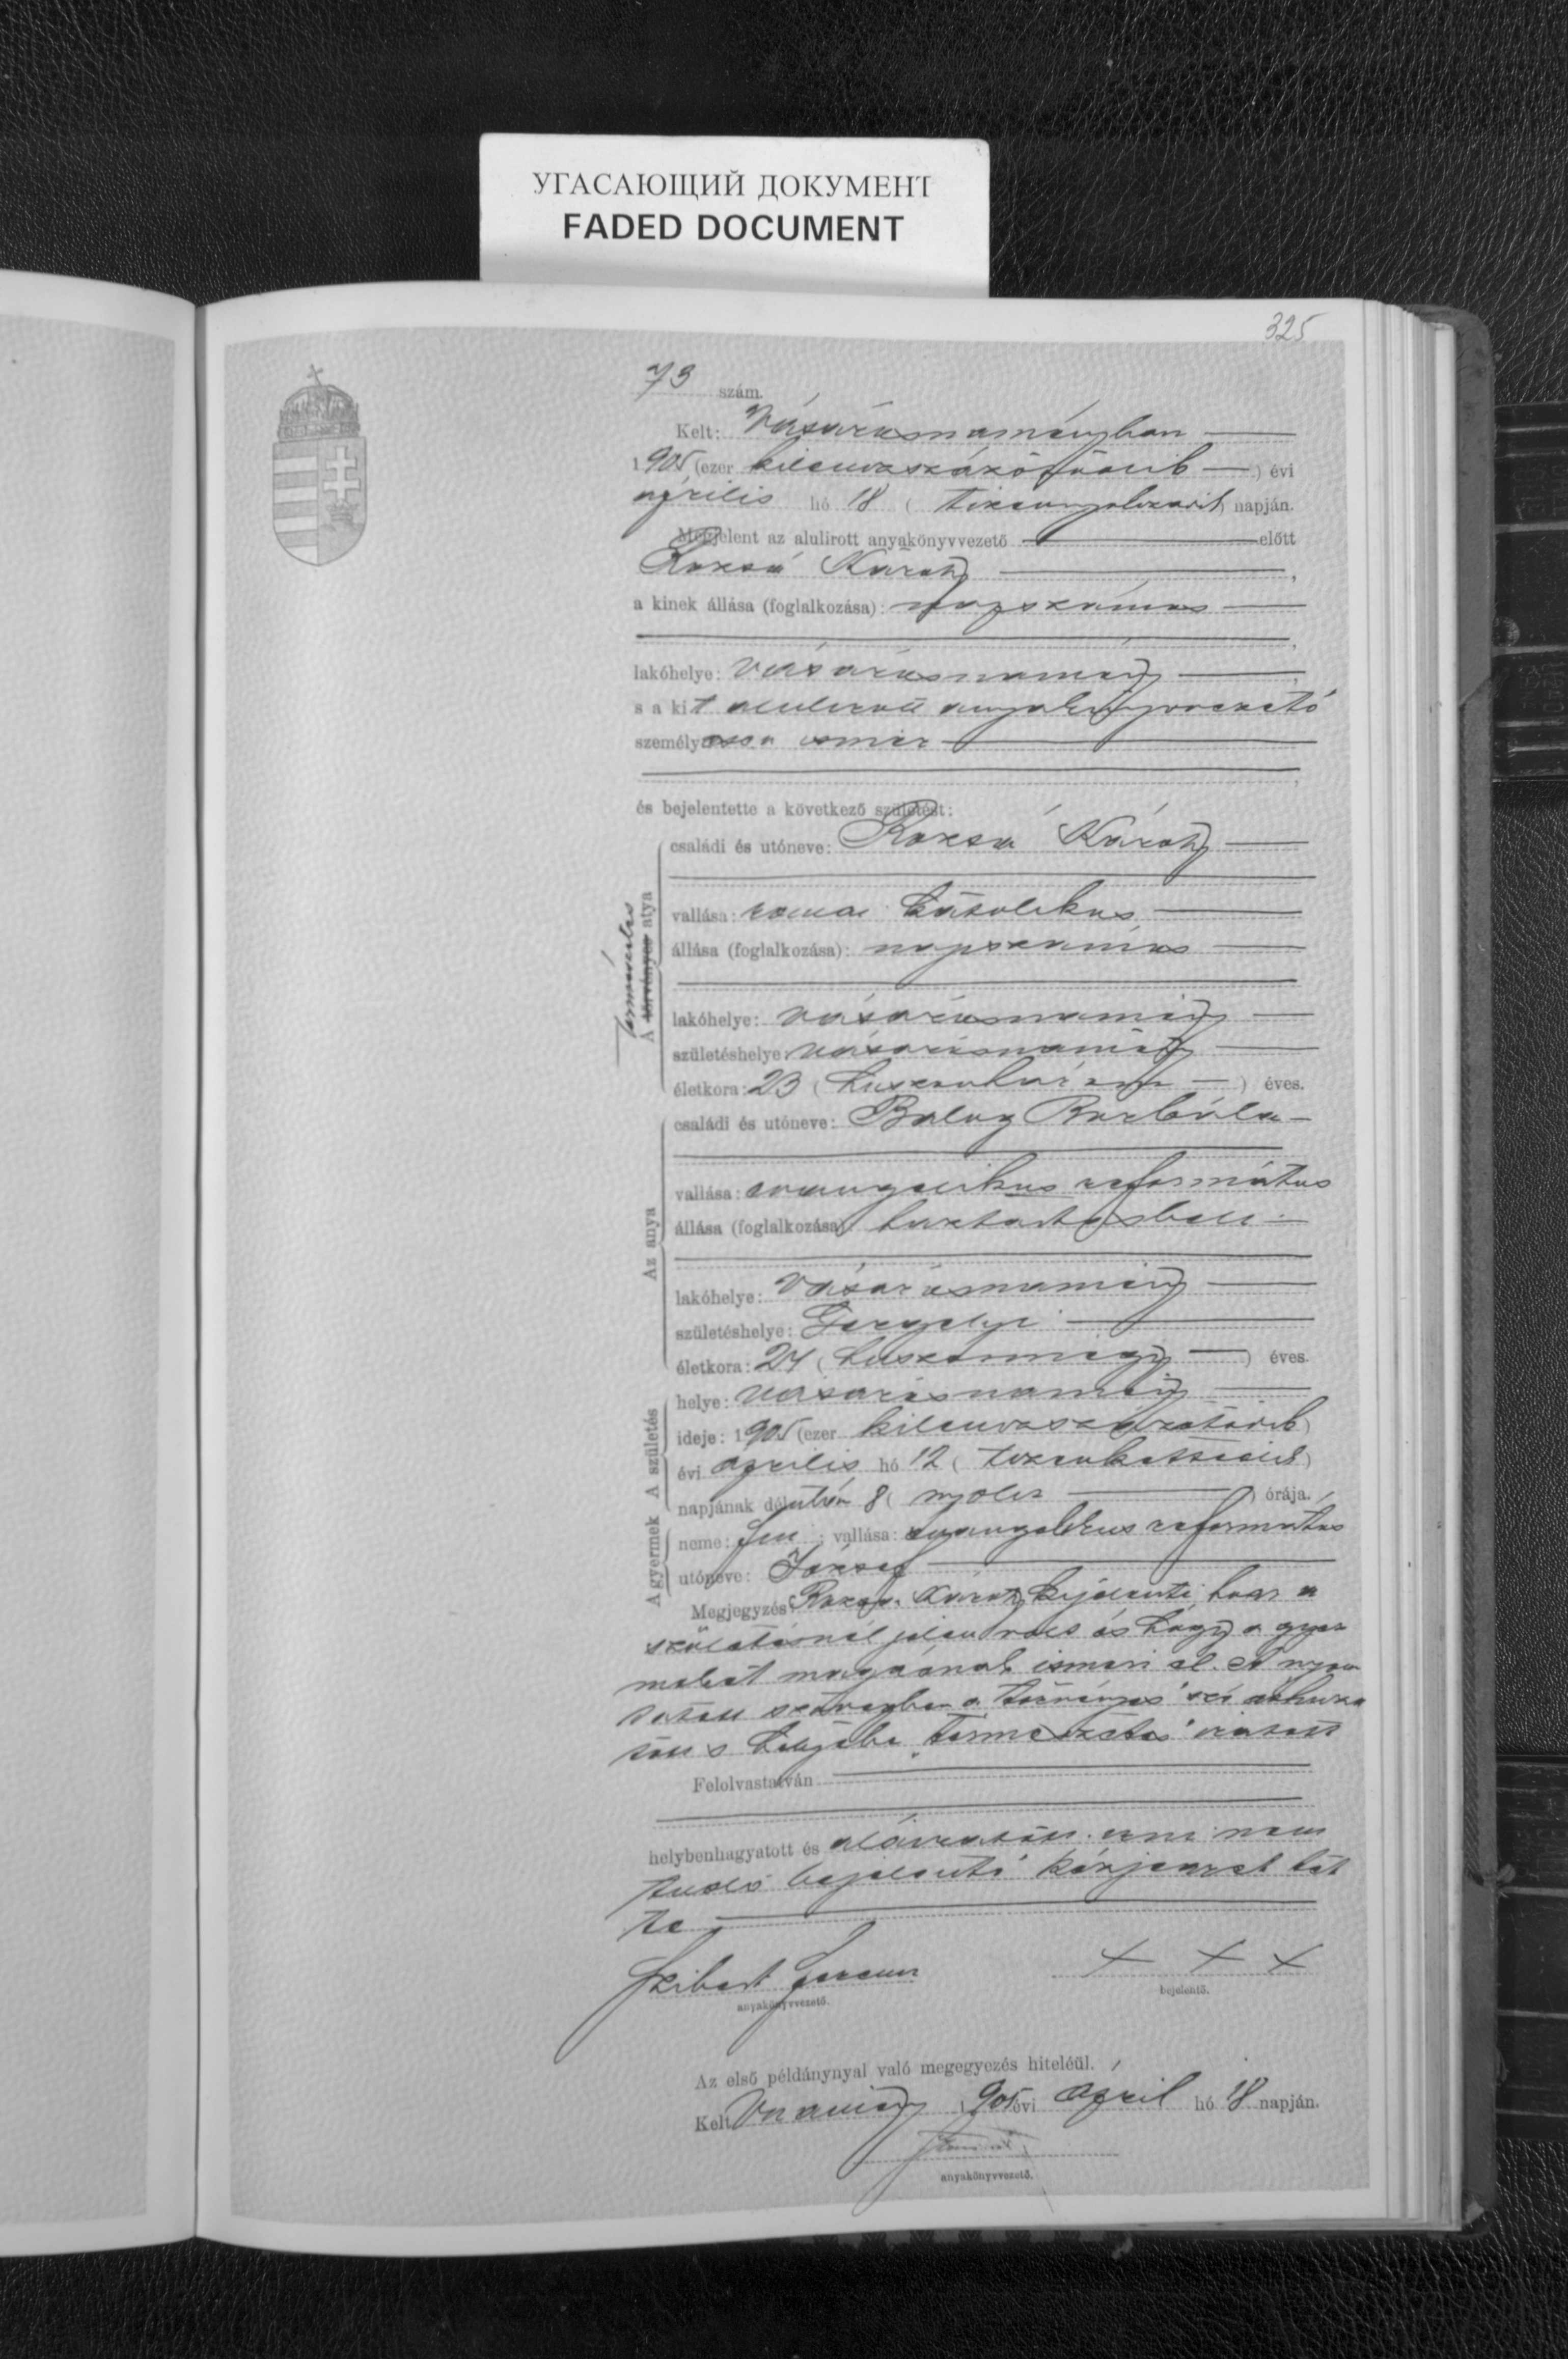 УГАСАЮЩИЙ ДОКУМЕНТ
FADED DOCUMENT
325
73 szám.
Kelt: Vásárosnaményban
1905 (ezer kilenczszázötödik) évi
április hó 18 (tizennyolczadik) napján.
Megjelent az alulirott anyakönyvvezető előtt
Rozsá Károly,
a kinek állása (foglalkozása): napszámos
lakóhelye: Vásárosnamény
s a kit alulirott anyakönyvvezető
személyesen ismer
és bejelentette a következő születést:
Természetes
A törvényes atya
családi és utóneve: Rozsá Károly
vallása: romai katolikus
állása (foglalkozása): napszámos
lakóhelye: vásárosnamény
születéshelye: vásárosnamény
életkora: 23 (huszonhárom) éves.
Az anya
családi és utóneve: Balog Borbála
vallása: evangelikus református
állása (foglalkozása): háztartásbeli
lakóhelye: vásárosnamény
születéshelye: Gergelyi
életkora: 24 (huszonnégy) éves.
A gyermek A születés
helye: vásárosnamény
ideje: 1905 (ezer kilenczszázötödik)
évi április hó 12 (tizenkettedik)
napjának délután 8 (nyolcz) órája.
neme: fiu; vallása: evangelikus református
utóneve: József
Megjegyzés: Rozsa Károly kijelenti, hogy a
születésnél jelen volt és hogy a gyer
meket magáénak ismeri el. A nyom
tatott szövegben a "törvényes" szó áthuza
tott s helyébe "természetes" iratott
Felolvastatván
helybenhagyatott és aláiratott. irni nem
tudó bejelentő kézjegyet tet
te
Szibert Ferencz
anyakönyvvezető.
+ + +
bejelentő.
Az első példánynyal való megegyezés hiteléül.
Kelt Vnamény 1905 évi April hó 18 napján.
anyakönyvvezető.